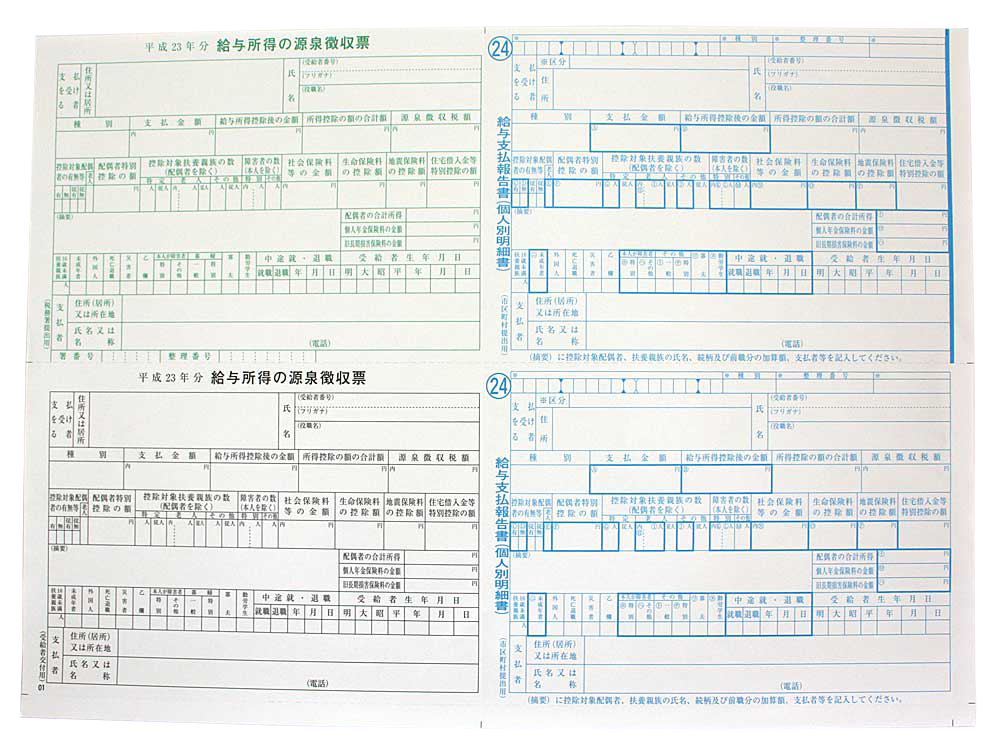 平成 23 年分 給与所得の源泉徴収票
支払を受ける者
住所又は居所
氏名
(受給者番号)
(フリガナ)
(役職名)
種別 支払金額 給与所得控除後の金額 所得控除の額の合計額 源泉徴収税額
内 円 円 円 内 円
控除対象配偶者の有無等 老人 配偶者特別控除の額 控除対象扶養親族の数(配偶者を除く) 障害者の数(本人を除く) 社会保険料等の金額 生命保険料の控除額 地震保険料の控除額 住宅借入金等特別控除の額
特定 老人 その他 特別 その他
有 無 従有 従無 円 人 従人 内 人 従人 人 従人 内 人 人 内 円 円 円 円
(摘要)
配偶者の合計所得 円
個人年金保険料の金額 円
旧長期損害保険料の金額 円
16歳未満扶養親族 未成年者 外国人 死亡退職 災害者 乙欄 本人が障害者 特別 その他 寡婦 一般 特別 寡夫 勤労学生 中途就・退職 受給者生年月日
人 就職 退職 年 月 日 明 大 昭 平 年 月 日
支払者
住所(居所)又は所在地
氏名又は名称
(電話)
(税務署提出用)
署番号 整理番号
24
※ ※種別 ※整理番号 ※
給与支払報告書(個人別明細書)
(市区町村提出用)
支払を受ける者
※区分
住所
氏名
(受給者番号)
(フリガナ)
(役職名)
種別 支払金額 給与所得控除後の金額 所得控除の額の合計額 源泉徴収税額
控除対象配偶者の有無等 老人 配偶者特別控除の額 控除対象扶養親族の数(配偶者を除く) 障害者の数(本人を除く) 社会保険料等の金額 生命保険料の控除額 地震保険料の控除額 住宅借入金等特別控除の額
特定 老人 その他 特別 その他
(摘要)
配偶者の合計所得 円
個人年金保険料の金額 円
旧長期損害保険料の金額 円
16歳未満扶養親族 未成年者 外国人 死亡退職 災害者 乙欄 本人が障害者 その他 中途就・退職 受給者生年月日
就職 退職 年 月 日 明 大 昭 平 年 月 日
支払者
住所(居所)又は所在地
氏名又は名称
(電話)
(摘要)に控除対象配偶者、扶養親族の氏名、続柄及び前職分の加算額、支払者等を記入してください。
平成 23 年分 給与所得の源泉徴収票
支払を受ける者
住所又は居所
氏名
(受給者番号)
(フリガナ)
(役職名)
種別 支払金額 給与所得控除後の金額 所得控除の額の合計額 源泉徴収税額
内 円 円 円 内 円
控除対象配偶者の有無等 老人 配偶者特別控除の額 控除対象扶養親族の数(配偶者を除く) 障害者の数(本人を除く) 社会保険料等の金額 生命保険料の控除額 地震保険料の控除額 住宅借入金等特別控除の額
特定 老人 その他 特別 その他
有 無 従有 従無 円 人 従人 内 人 従人 人 従人 内 人 人 内 円 円 円 円
(摘要)
配偶者の合計所得 円
個人年金保険料の金額 円
旧長期損害保険料の金額 円
16歳未満扶養親族 未成年者 外国人 死亡退職 災害者 乙欄 本人が障害者 特別 その他 寡婦 一般 特別 寡夫 勤労学生 中途就・退職 受給者生年月日
人 就職 退職 年 月 日 明 大 昭 平 年 月 日
支払者
住所(居所)又は所在地
氏名又は名称
(電話)
(受給者交付用)
01
24
※ ※種別 ※整理番号 ※
給与支払報告書(個人別明細書)
(市区町村提出用)
支払を受ける者
※区分
住所
氏名
(受給者番号)
(フリガナ)
(役職名)
種別 支払金額 給与所得控除後の金額 所得控除の額の合計額 源泉徴収税額
控除対象配偶者の有無等 老人 配偶者特別控除の額 控除対象扶養親族の数(配偶者を除く) 障害者の数(本人を除く) 社会保険料等の金額 生命保険料の控除額 地震保険料の控除額 住宅借入金等特別控除の額
特定 老人 その他 特別 その他
(摘要)
配偶者の合計所得 円
個人年金保険料の金額 円
旧長期損害保険料の金額 円
16歳未満扶養親族 未成年者 外国人 死亡退職 災害者 乙欄 本人が障害者 その他 中途就・退職 受給者生年月日
就職 退職 年 月 日 明 大 昭 平 年 月 日
支払者
住所(居所)又は所在地
氏名又は名称
(電話)
(摘要)に控除対象配偶者、扶養親族の氏名、続柄及び前職分の加算額、支払者等を記入してください。